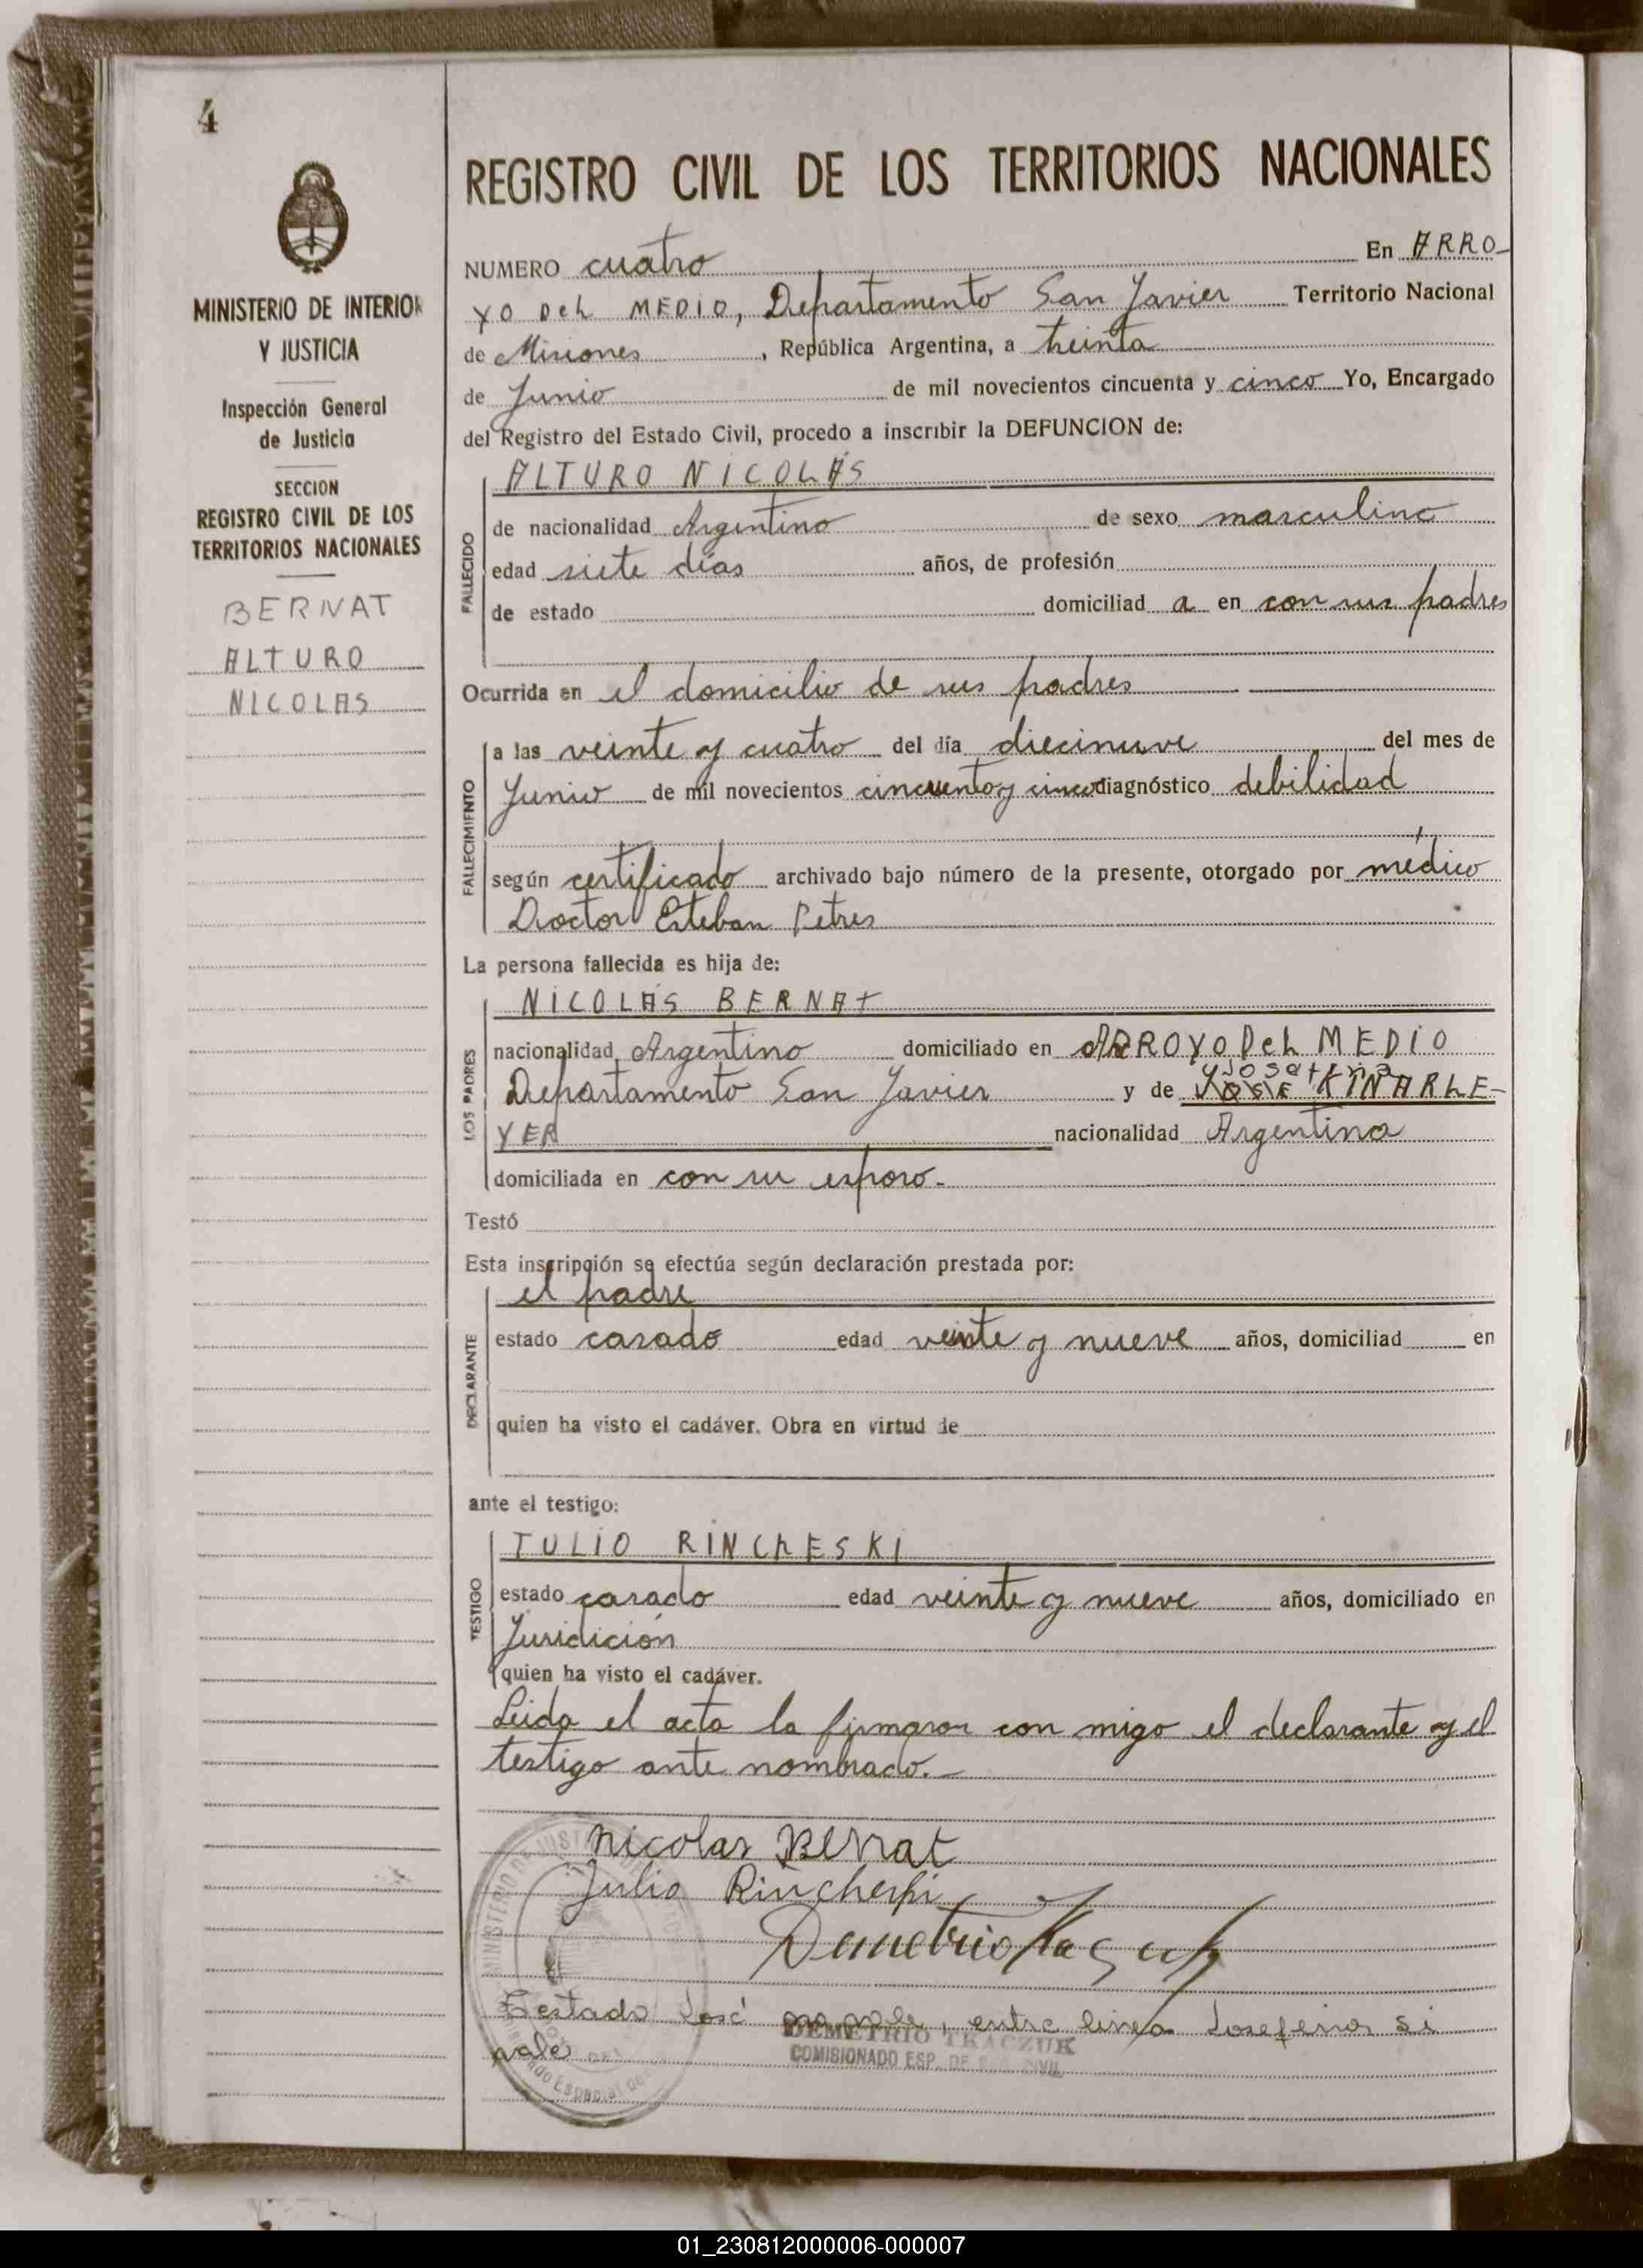 4
MINISTERIO DE INTERIOR
Y JUSTICIA
Inspección General
de Justicia
SECCION
REGISTRO CIVIL DE LOS
TERRITORIOS NACIONALES
BERNAT
ALTURO
NICOLAS
REGISTRO CIVIL DE LOS TERRITORIOS NACIONALES
NUMERO cuatro En ARRO-
YO DEL MEDIO, Departamento San Javier Territorio Nacional
de Misiones, República Argentina, a treinta
de Junio de mil novecientos cincuenta y cinco Yo, Encargado
del Registro del Estado Civil, procedo a inscribir la DEFUNCION de:
FALLECIDO
ALTURO NICOLÁS
de nacionalidad Argentino de sexo masculino
edad siete días años, de profesión
de estado domiciliad a en con sus padres
Ocurrida en el domicilio de sus padres
FALLECIMIENTO
a las veinte y cuatro del día diecinueve del mes de
Junio de mil novecientos cincuenta y cinco diagnóstico debilidad
según certificado archivado bajo número de la presente, otorgado por médico
Doctor Esteban Petres
La persona fallecida es hija de:
LOS PADRES
NICOLÁS BERNAT
nacionalidad Argentino domiciliado en ARROYO DEL MEDIO
Josefina
Departamento San Javier y de JOSE KINARLE-
YER nacionalidad Argentina
domiciliada en con su esposo.
Testó
Esta inscripción se efectúa según declaración prestada por:
DECLARANTE
el padre
estado casado edad veinte y nueve años, domiciliad en
quien ha visto el cadáver. Obra en virtud de
ante el testigo:
TESTIGO
JULIO RINCHESKI
estado casado edad veinte y nueve años, domiciliado en
Juridición
quien ha visto el cadáver.
Leida el acta la firmaron con migo el declarante y el
testigo ante nombrado.-
Nicolas Bernat
Julio Rincheski
Demetrio Tkaczuk
Testado José no vale, entre linea Josefina si
vale
DEMETRIO TKACZUK
COMISIONADO ESP. DE CIVIL
01_230812000006-000007